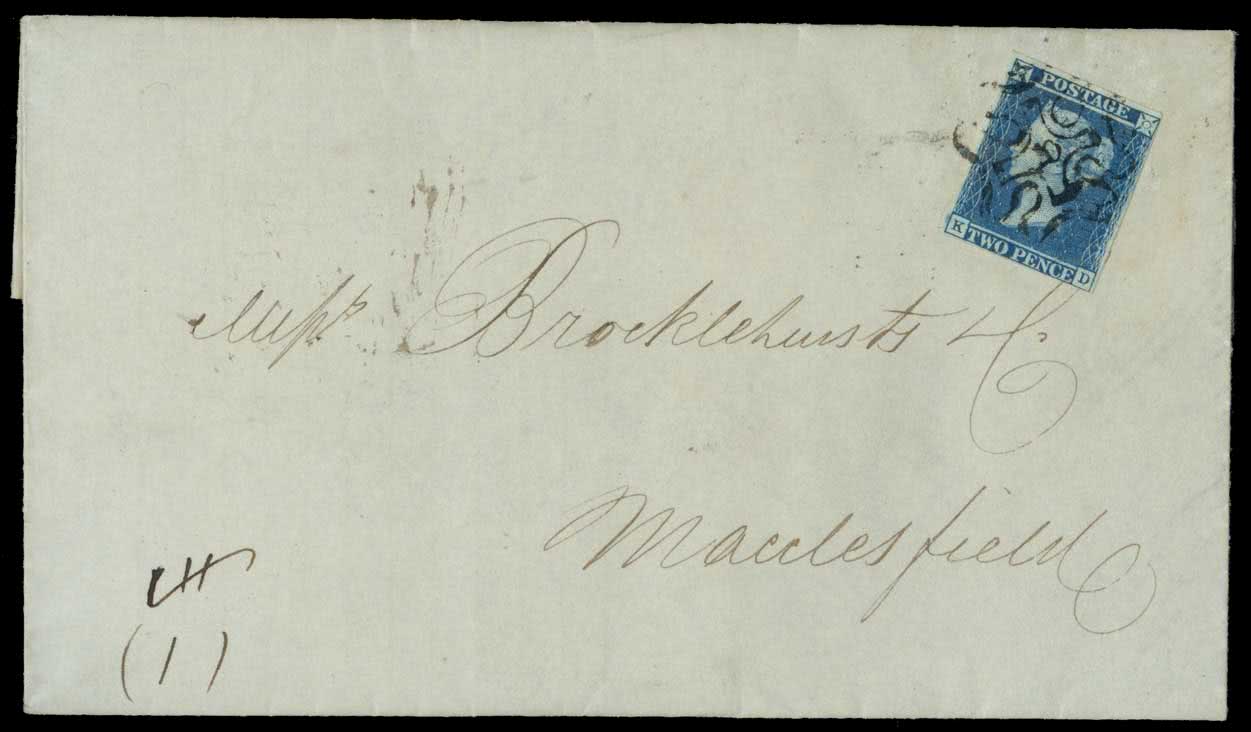 POSTAGE
K TWO PENCE D
Messrs Brocklehursts & Co
Macclesfield
(1)